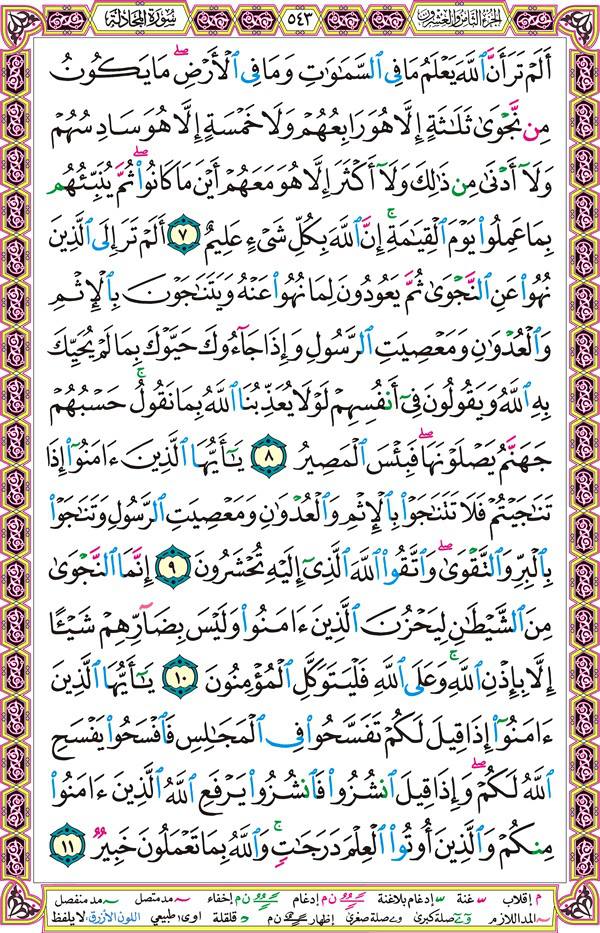 الجزء الثامن والعشرون
٥٤٣
سورة المجادلة
أَلَمْ تَرَ أَنَّ ٱللَّهَ يَعْلَمُ مَا فِى ٱلسَّمَٰوَٰتِ وَمَا فِى ٱلْأَرْضِ ۖ مَا يَكُونُ
مِن نَّجْوَىٰ ثَلَٰثَةٍ إِلَّا هُوَ رَابِعُهُمْ وَلَا خَمْسَةٍ إِلَّا هُوَ سَادِسُهُمْ
وَلَآ أَدْنَىٰ مِن ذَٰلِكَ وَلَآ أَكْثَرَ إِلَّا هُوَ مَعَهُمْ أَيْنَ مَا كَانُوا۟ ۖ ثُمَّ يُنَبِّئُهُم
بِمَا عَمِلُوا۟ يَوْمَ ٱلْقِيَٰمَةِ ۚ إِنَّ ٱللَّهَ بِكُلِّ شَىْءٍ عَلِيمٌ ٧ أَلَمْ تَرَ إِلَى ٱلَّذِينَ
نُهُوا۟ عَنِ ٱلنَّجْوَىٰ ثُمَّ يَعُودُونَ لِمَا نُهُوا۟ عَنْهُ وَيَتَنَٰجَوْنَ بِٱلْإِثْمِ
وَٱلْعُدْوَٰنِ وَمَعْصِيَتِ ٱلرَّسُولِ وَإِذَا جَآءُوكَ حَيَّوْكَ بِمَا لَمْ يُحَيِّكَ
بِهِ ٱللَّهُ وَيَقُولُونَ فِىٓ أَنفُسِهِمْ لَوْلَا يُعَذِّبُنَا ٱللَّهُ بِمَا نَقُولُ ۚ حَسْبُهُمْ
جَهَنَّمُ يَصْلَوْنَهَا ۖ فَبِئْسَ ٱلْمَصِيرُ ٨ يَٰٓأَيُّهَا ٱلَّذِينَ ءَامَنُوٓا۟ إِذَا
تَنَٰجَيْتُمْ فَلَا تَتَنَٰجَوْا۟ بِٱلْإِثْمِ وَٱلْعُدْوَٰنِ وَمَعْصِيَتِ ٱلرَّسُولِ وَتَنَٰجَوْا۟
بِٱلْبِرِّ وَٱلتَّقْوَىٰ ۖ وَٱتَّقُوا۟ ٱللَّهَ ٱلَّذِىٓ إِلَيْهِ تُحْشَرُونَ ٩ إِنَّمَا ٱلنَّجْوَىٰ
مِنَ ٱلشَّيْطَٰنِ لِيَحْزُنَ ٱلَّذِينَ ءَامَنُوا۟ وَلَيْسَ بِضَآرِّهِمْ شَيْـًٔا
إِلَّا بِإِذْنِ ٱللَّهِ ۚ وَعَلَى ٱللَّهِ فَلْيَتَوَكَّلِ ٱلْمُؤْمِنُونَ ١٠ يَٰٓأَيُّهَا ٱلَّذِينَ
ءَامَنُوٓا۟ إِذَا قِيلَ لَكُمْ تَفَسَّحُوا۟ فِى ٱلْمَجَٰلِسِ فَٱفْسَحُوا۟ يَفْسَحِ
ٱللَّهُ لَكُمْ ۖ وَإِذَا قِيلَ ٱنشُزُوا۟ فَٱنشُزُوا۟ يَرْفَعِ ٱللَّهُ ٱلَّذِينَ ءَامَنُوا۟
مِنكُمْ وَٱلَّذِينَ أُوتُوا۟ ٱلْعِلْمَ دَرَجَٰتٍ ۚ وَٱللَّهُ بِمَا تَعْمَلُونَ خَبِيرٌ ١١
م إقلاب غنة إدغام بلاغنة ن م إدغام ن م إخفاء مد متصل مد منفصل
المد اللازم صلة كبرى صلة صغرى إظهار ن م قلقلة اوى طبيعي اللون الأزرق لا يلفظ